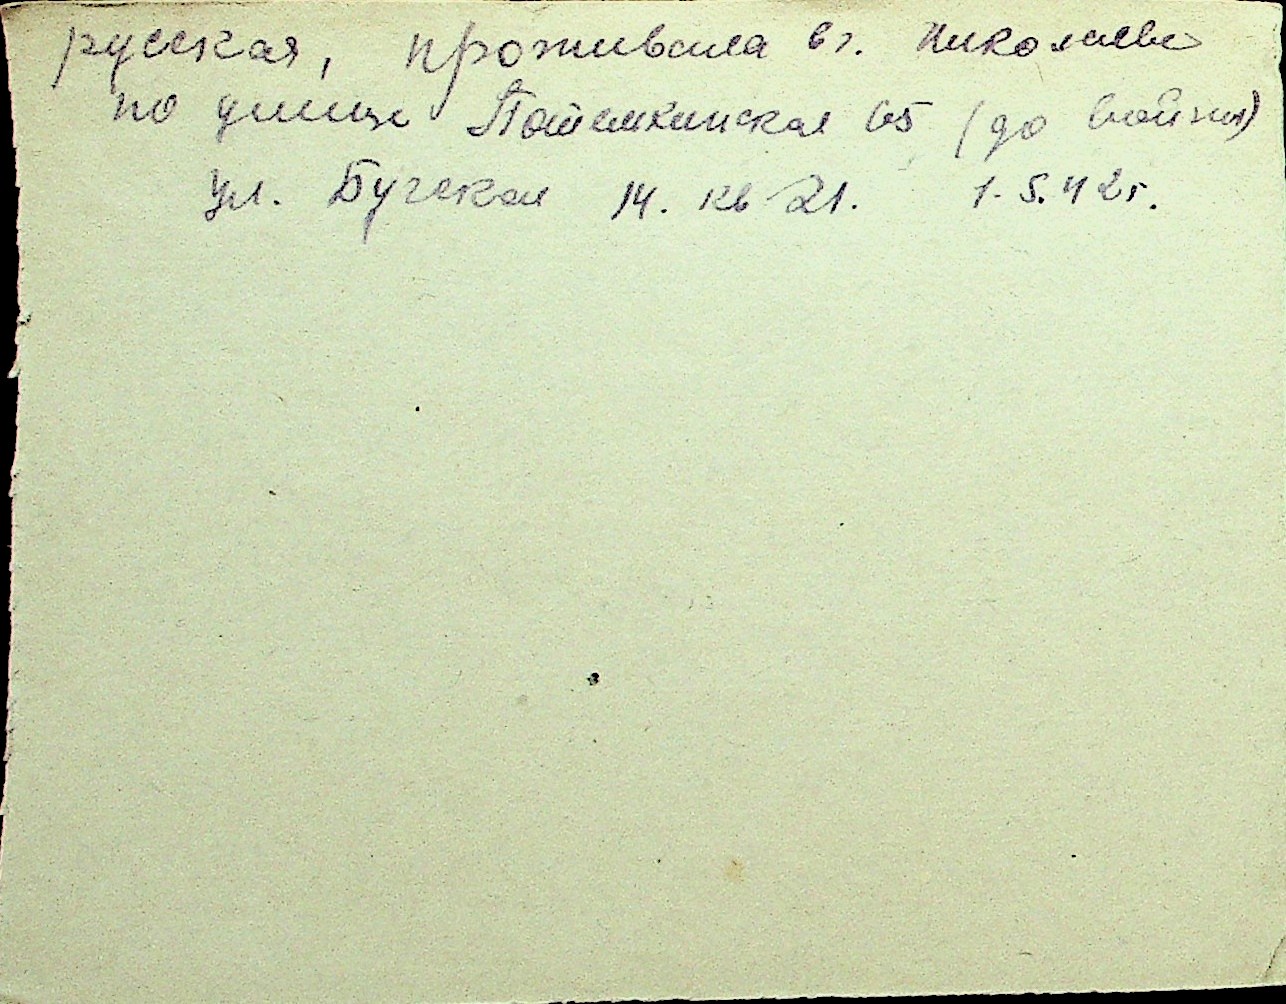 русская, проживала в г. Николаеве
по улице Потемкинская 65 (до войны)
ул. Бугская 14. кв 21. 1.5.42г.